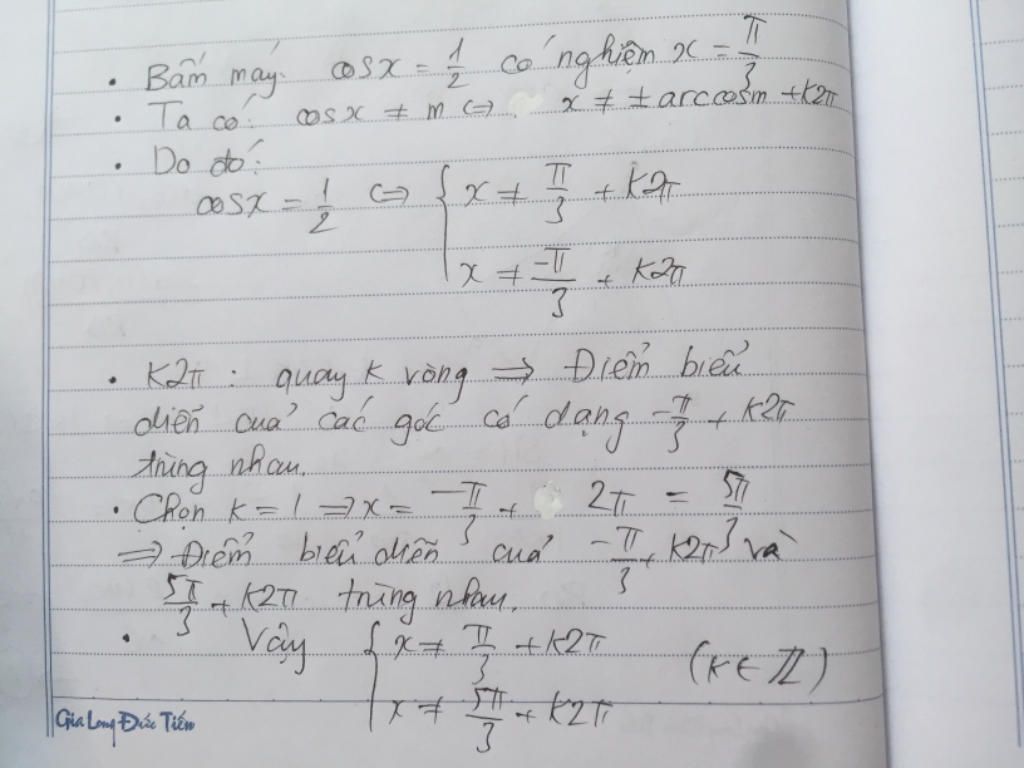 • Bấm máy. cosx = 1/2 có nghiệm x = π/3
• Ta có: cosx ≠ m ⇔ x ≠ ± arccosm + k2π
• Do đó:
cosx = 1/2 ⇔ { x ≠ π/3 + k2π
x ≠ -π/3 + k2π
• K2π : quay k vòng ⇒ Điểm biểu
diễn cuả các góc có dạng -π/3 + k2π
trùng nhau.
• Chọn k = 1 ⇒ x = -π/3 + 2π = 5π/3
⇒ Điểm biểu diễn cuả -π/3 + k2π và
5π/3 + k2π trùng nhau.
• Vậy { x ≠ π/3 + k2π (k ∈ ℤ)
x ≠ 5π/3 + k2π
Gia Long Đức Tiến